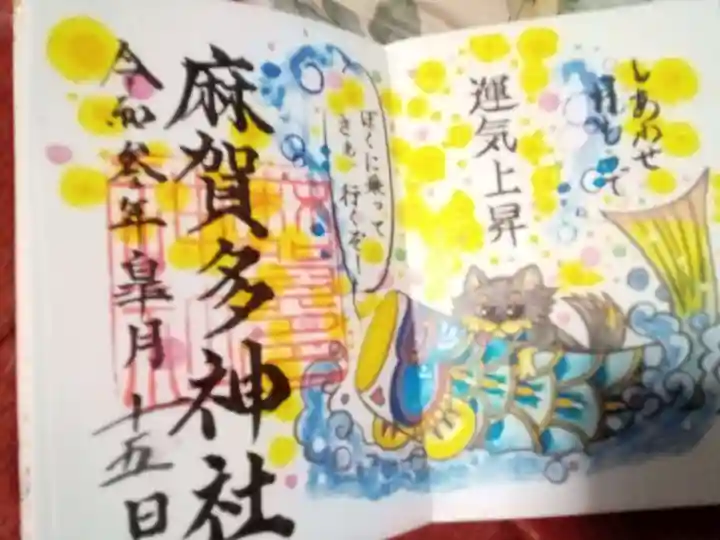 しあわせ
運気上昇
ぼくに乗って
行くぞー!
麻賀多神社
令和参年皐月十五日